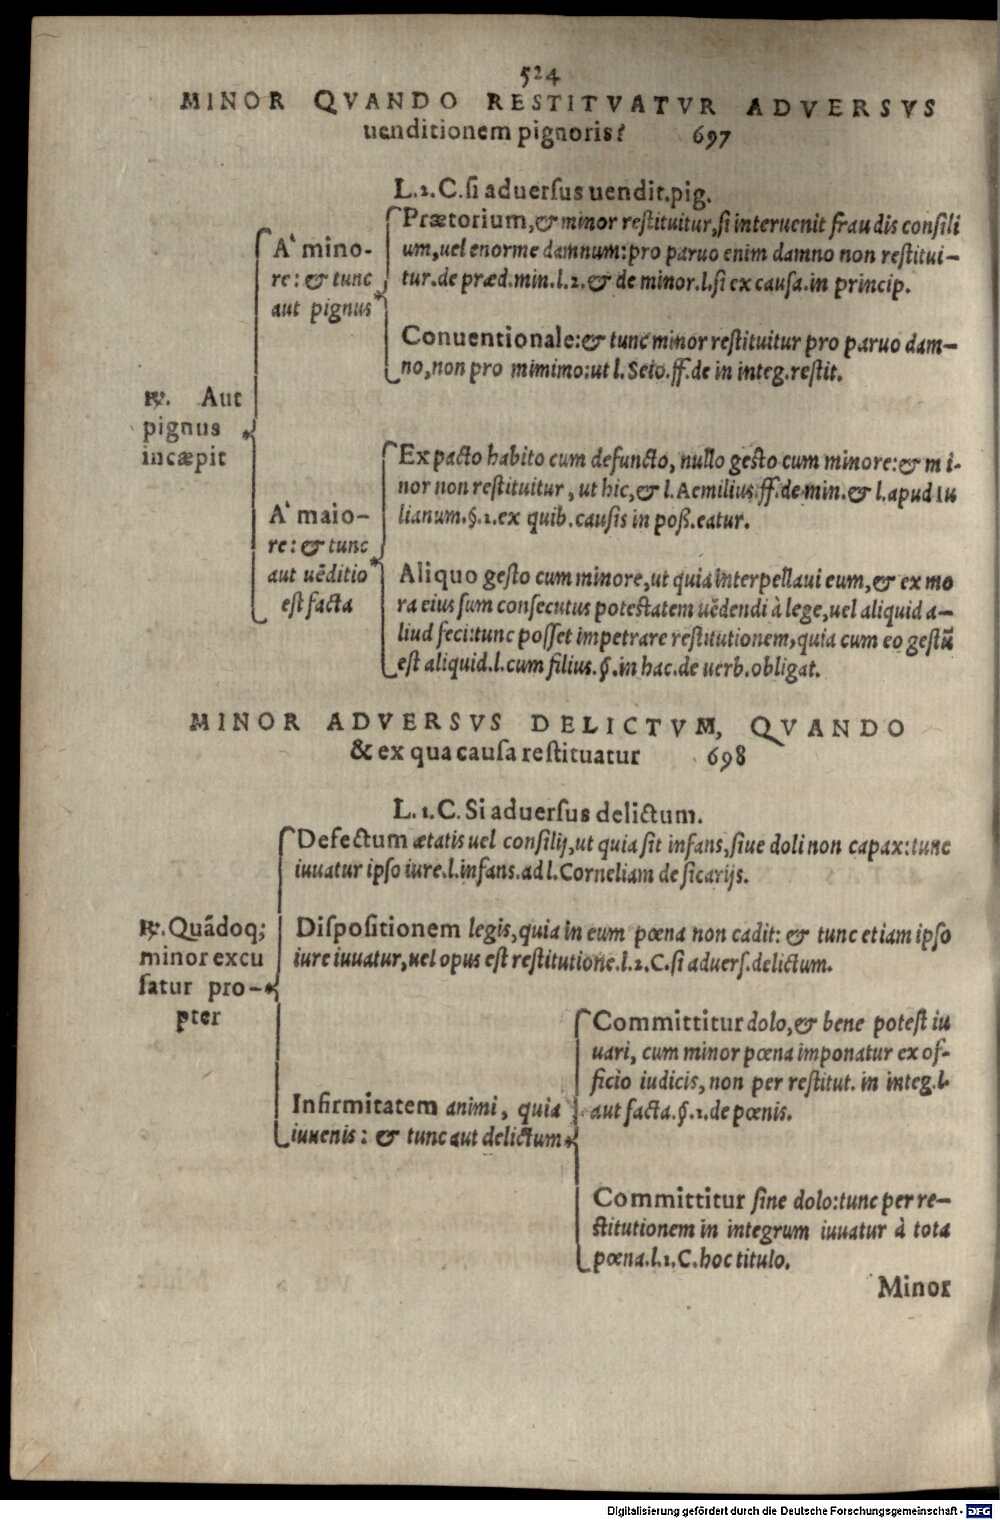 524
MINOR QVANDO RESTITVATVR ADVERSVS
uenditionem pignoris? 697
L.2.C.ſi aduerſus uendit.pig.
℞. Aut
pignus
incæpit
A' mino-
re: & tunc
aut pignus
Prætorium,& minor reſtituitur,ſi interuenit fraudis conſili
um,uel enorme damnum:pro paruo enim damno non reſtitui-
tur.de præd.min.l.2.& de minor.l.ſi ex cauſa.in princip.
Conuentionale:& tunc minor reſtituitur pro paruo dam-
no,non pro mimimo:ut l.Seio.ff.de in integ.reſtit.
A' maio-
re: & tunc
aut uẽditio
eſt facta
Ex pacto habito cum defuncto, nullo geſto cum minore:& mi-
nor non reſtituitur, ut hic,& l.Aemilius.ff.de min.& l.apud Iu
lianum.§.1.ex quib.cauſis in poß.eatur.
Aliquo geſto cum minore,ut quia interpellaui eum,& ex mo
ra eius ſum conſecutus poteſtatem uẽdendi à lege,uel aliquid a-
liud feci:tunc poſſet impetrare reſtitutionem,quia cum eo geſtũ
eſt aliquid.l.cum filius.§.in hac.de uerb.obligat.
MINOR ADVERSVS DELICTVM, QVANDO
& ex qua cauſa reſtituatur 698
L.1.C.Si aduerſus delictum.
℞.Quãdoq;
minor excu
ſatur pro-
pter
Defectum ætatis uel conſilij,ut quia ſit infans,ſiue doli non capax:tunc
iuuatur ipſo iure.l.infans.ad l.Corneliam de ſicarijs.
Diſpoſitionem legis,quia in eum pœna non cadit: & tunc etiam ipſo
iure iuuatur,uel opus eſt reſtitutione.l.2.C.ſi aduerſ.delictum.
Infirmitatem animi, quia
iuuenis: & tunc aut delictum
Committitur dolo,& bene poteſt iu
uari, cum minor pœna imponatur ex of-
ficio iudicis, non per reſtitut. in integ.l.
aut facta.§.1.de pœnis.
Committitur ſine dolo:tunc per re-
ſtitutionem in integrum iuuatur à tota
pœna.l.1.C.hoc titulo.
Minor
Digitalisierung gefördert durch die Deutsche Forschungsgemeinschaft - DFG